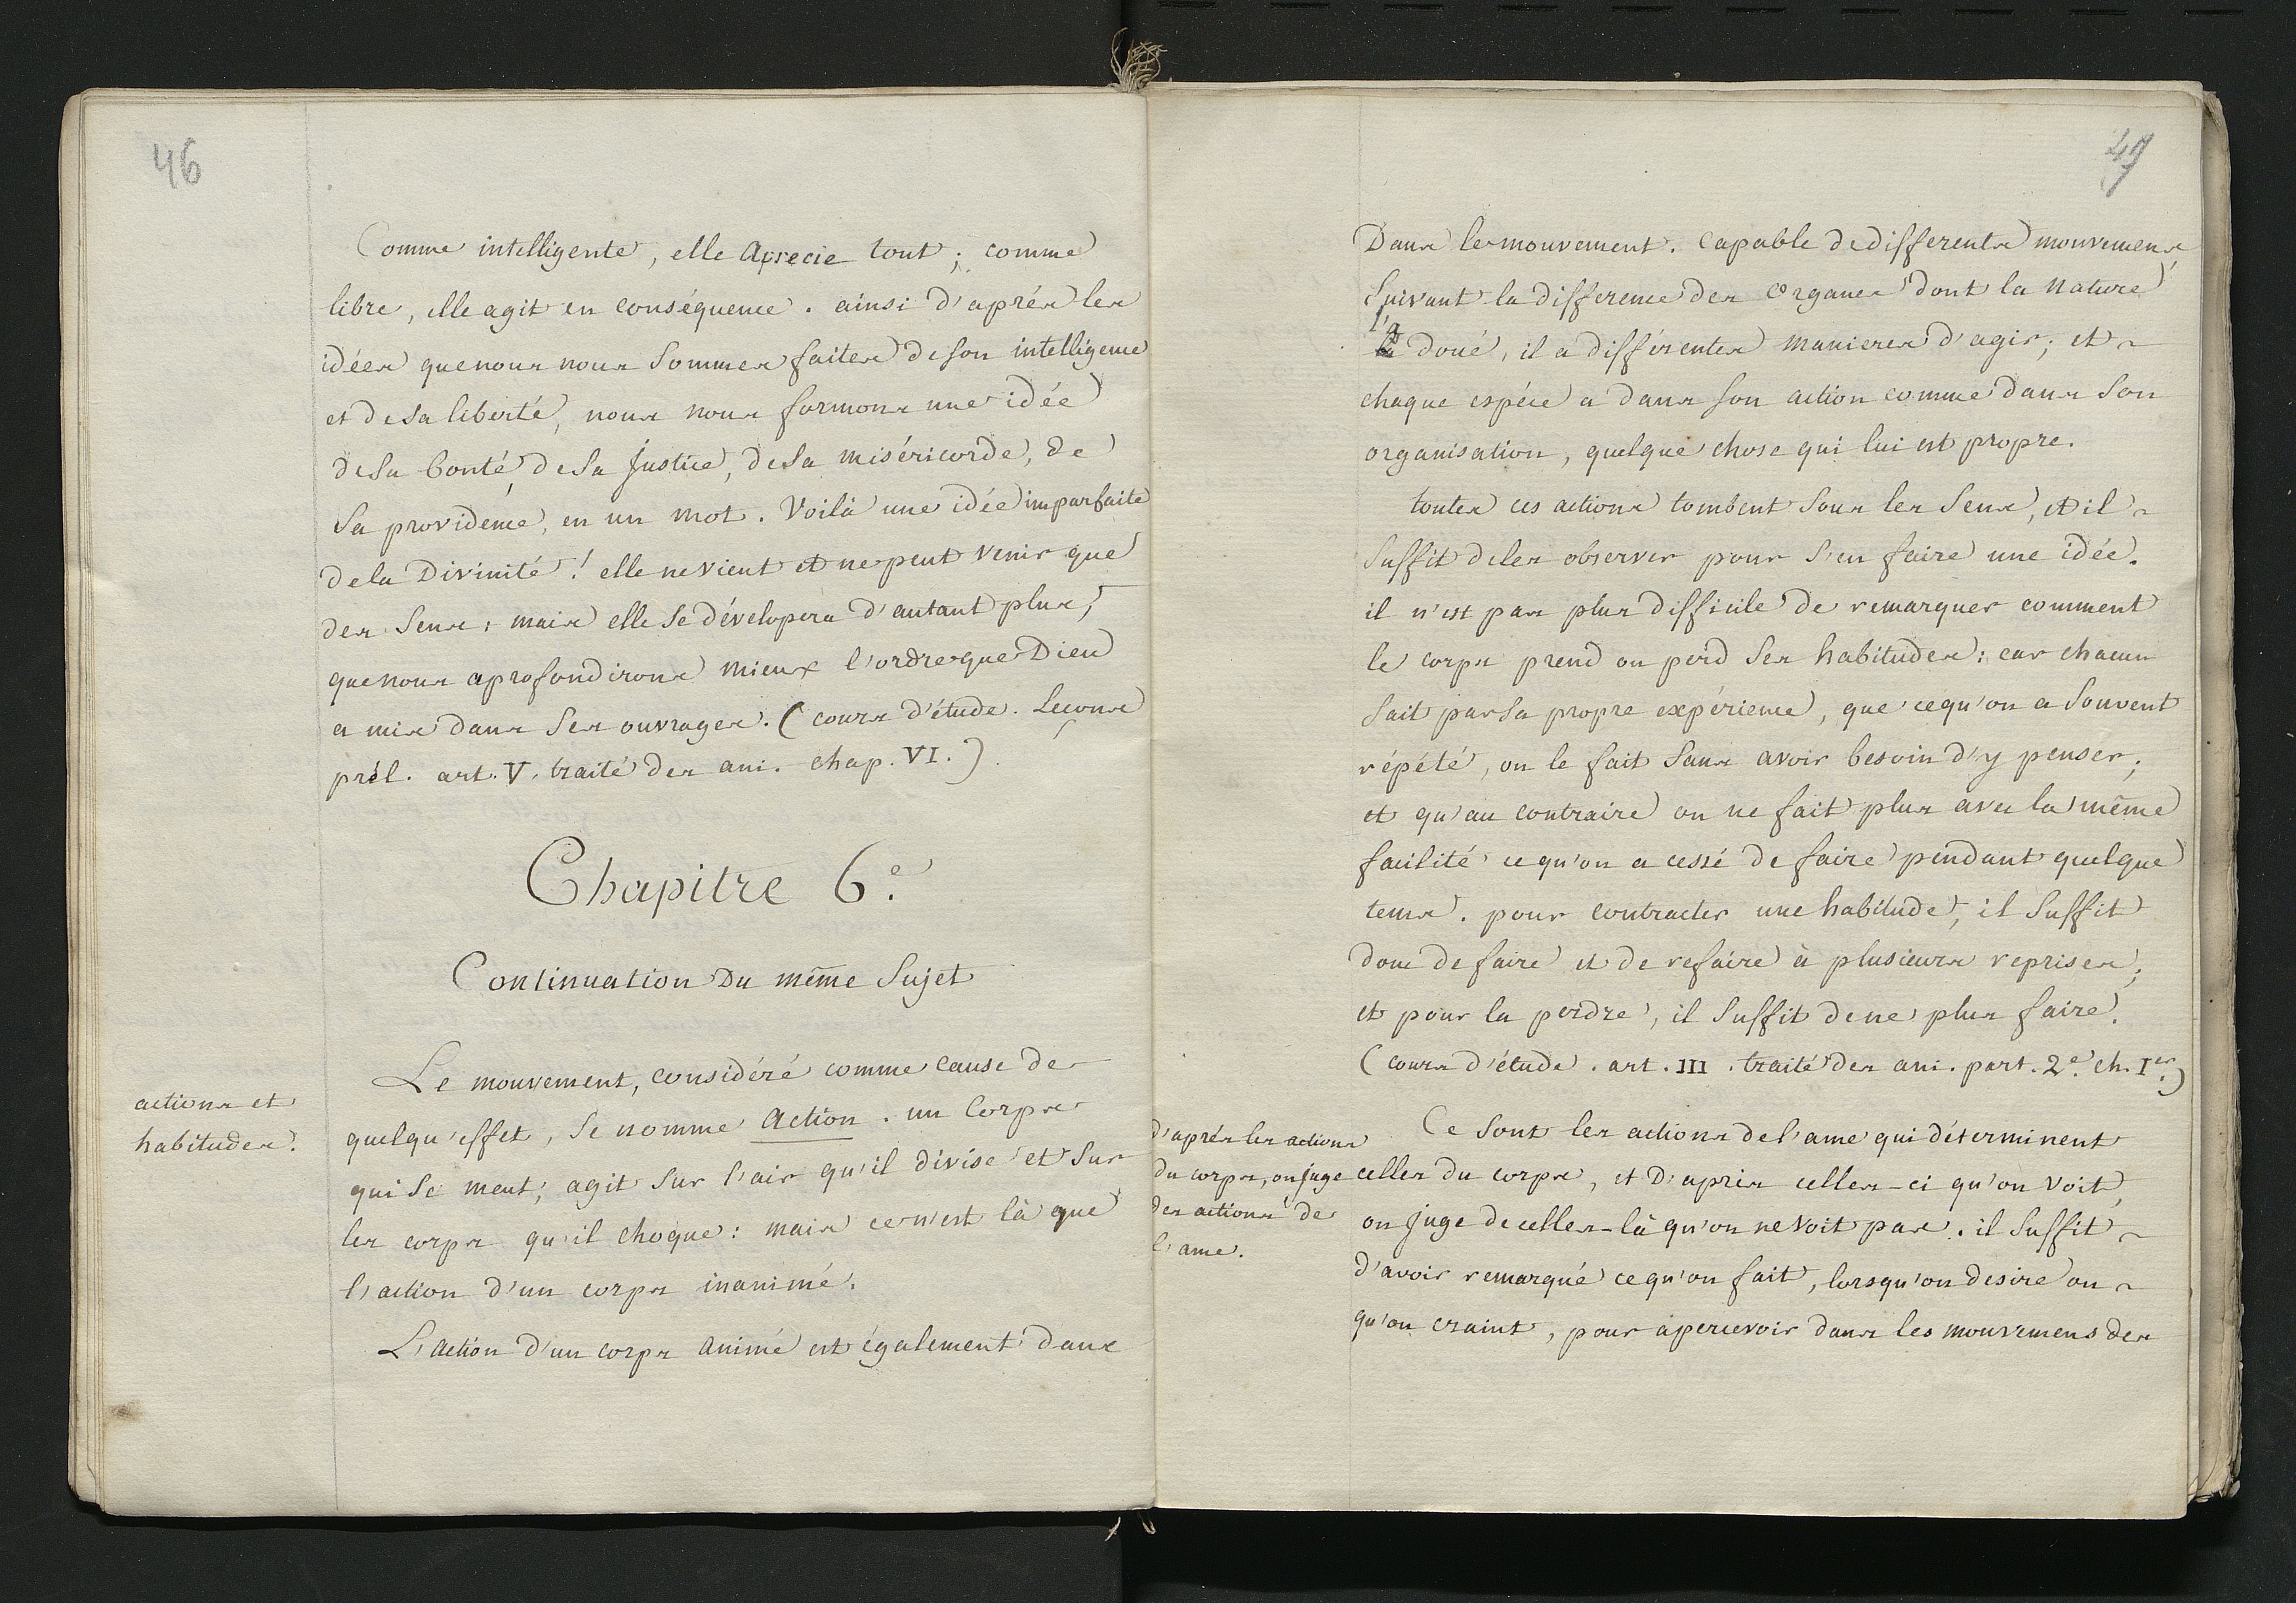 46
Comme intelligente, elle aprecie tout; comme
libre, elle agit en conséquence. ainsi d'aprés les
idées que nous nous sommes faites de son intelligence
et de sa liberté, nous nous formons une idée
de sa bonté, de sa justice, de sa miséricorde, de
sa providence, en un mot. Voilà une idée imparfaite
de la Divinité! elle ne vient et ne peut venir que
des sens: mais elle se dévelopera d'autant plus,
que nous aprofondirons mieux l'ordre que Dieu
a mis dans ses ouvrages. (cours d'étude. Leçons
prél. art. V. traité des ani. chap. VI.).
Chapitre 6.e
Continuation Du même Sujet
actions et
habitudes.
Le mouvement, considéré comme cause de
quelqu'effet, se nomme action. un corps
qui se meut, agit sur l'air qu'il divise et sur
les corps qu'il choque: mais ce n'est là que
l'action d'un corps inanimé.
L'action d'un corps animé est également dans
47
Dans le mouvement. Capable de differents mouvemens
suivant la difference des organes dont la nature
l'a doué, il a différentes manieres d'agir; et
chaque espéce a dans son action comme dans son
organisation, quelque chose qui lui est propre.
toutes ces actions tombent sous les sens, et il
suffit de les observer pour s'en faire une idée.
il n'est pas plus difficile de remarquer comment
le corps prend ou perd ses habitudes: car chacun
sait par sa propre expérience, que ce qu'on a souvent
répété, on le fait sans avoir besoin d'y penser;
et qu'au contraire on ne fait plus avec la même
facilité ce qu'on a cessé de faire pendant quelque
tems. pour contracter une habitude, il suffit
donc de faire et de refaire à plusieurs reprises;
et pour la perdre, il suffit de ne plus faire.
(cours d'étude. art. III. traité des ani. part. 2.e ch. I.er)
d'aprés les actions
du corps, on juge
des actions de
l'ame.
Ce sont les actions de l'ame qui déterminent
celles du corps, et d'aprés celles-ci qu'on voit,
on juge de celles-là qu'on ne voit pas. il suffit
d'avoir remarqué ce qu'on fait, lorsqu'on desire ou
qu'on craint, pour apercevoir dans les mouvemens des